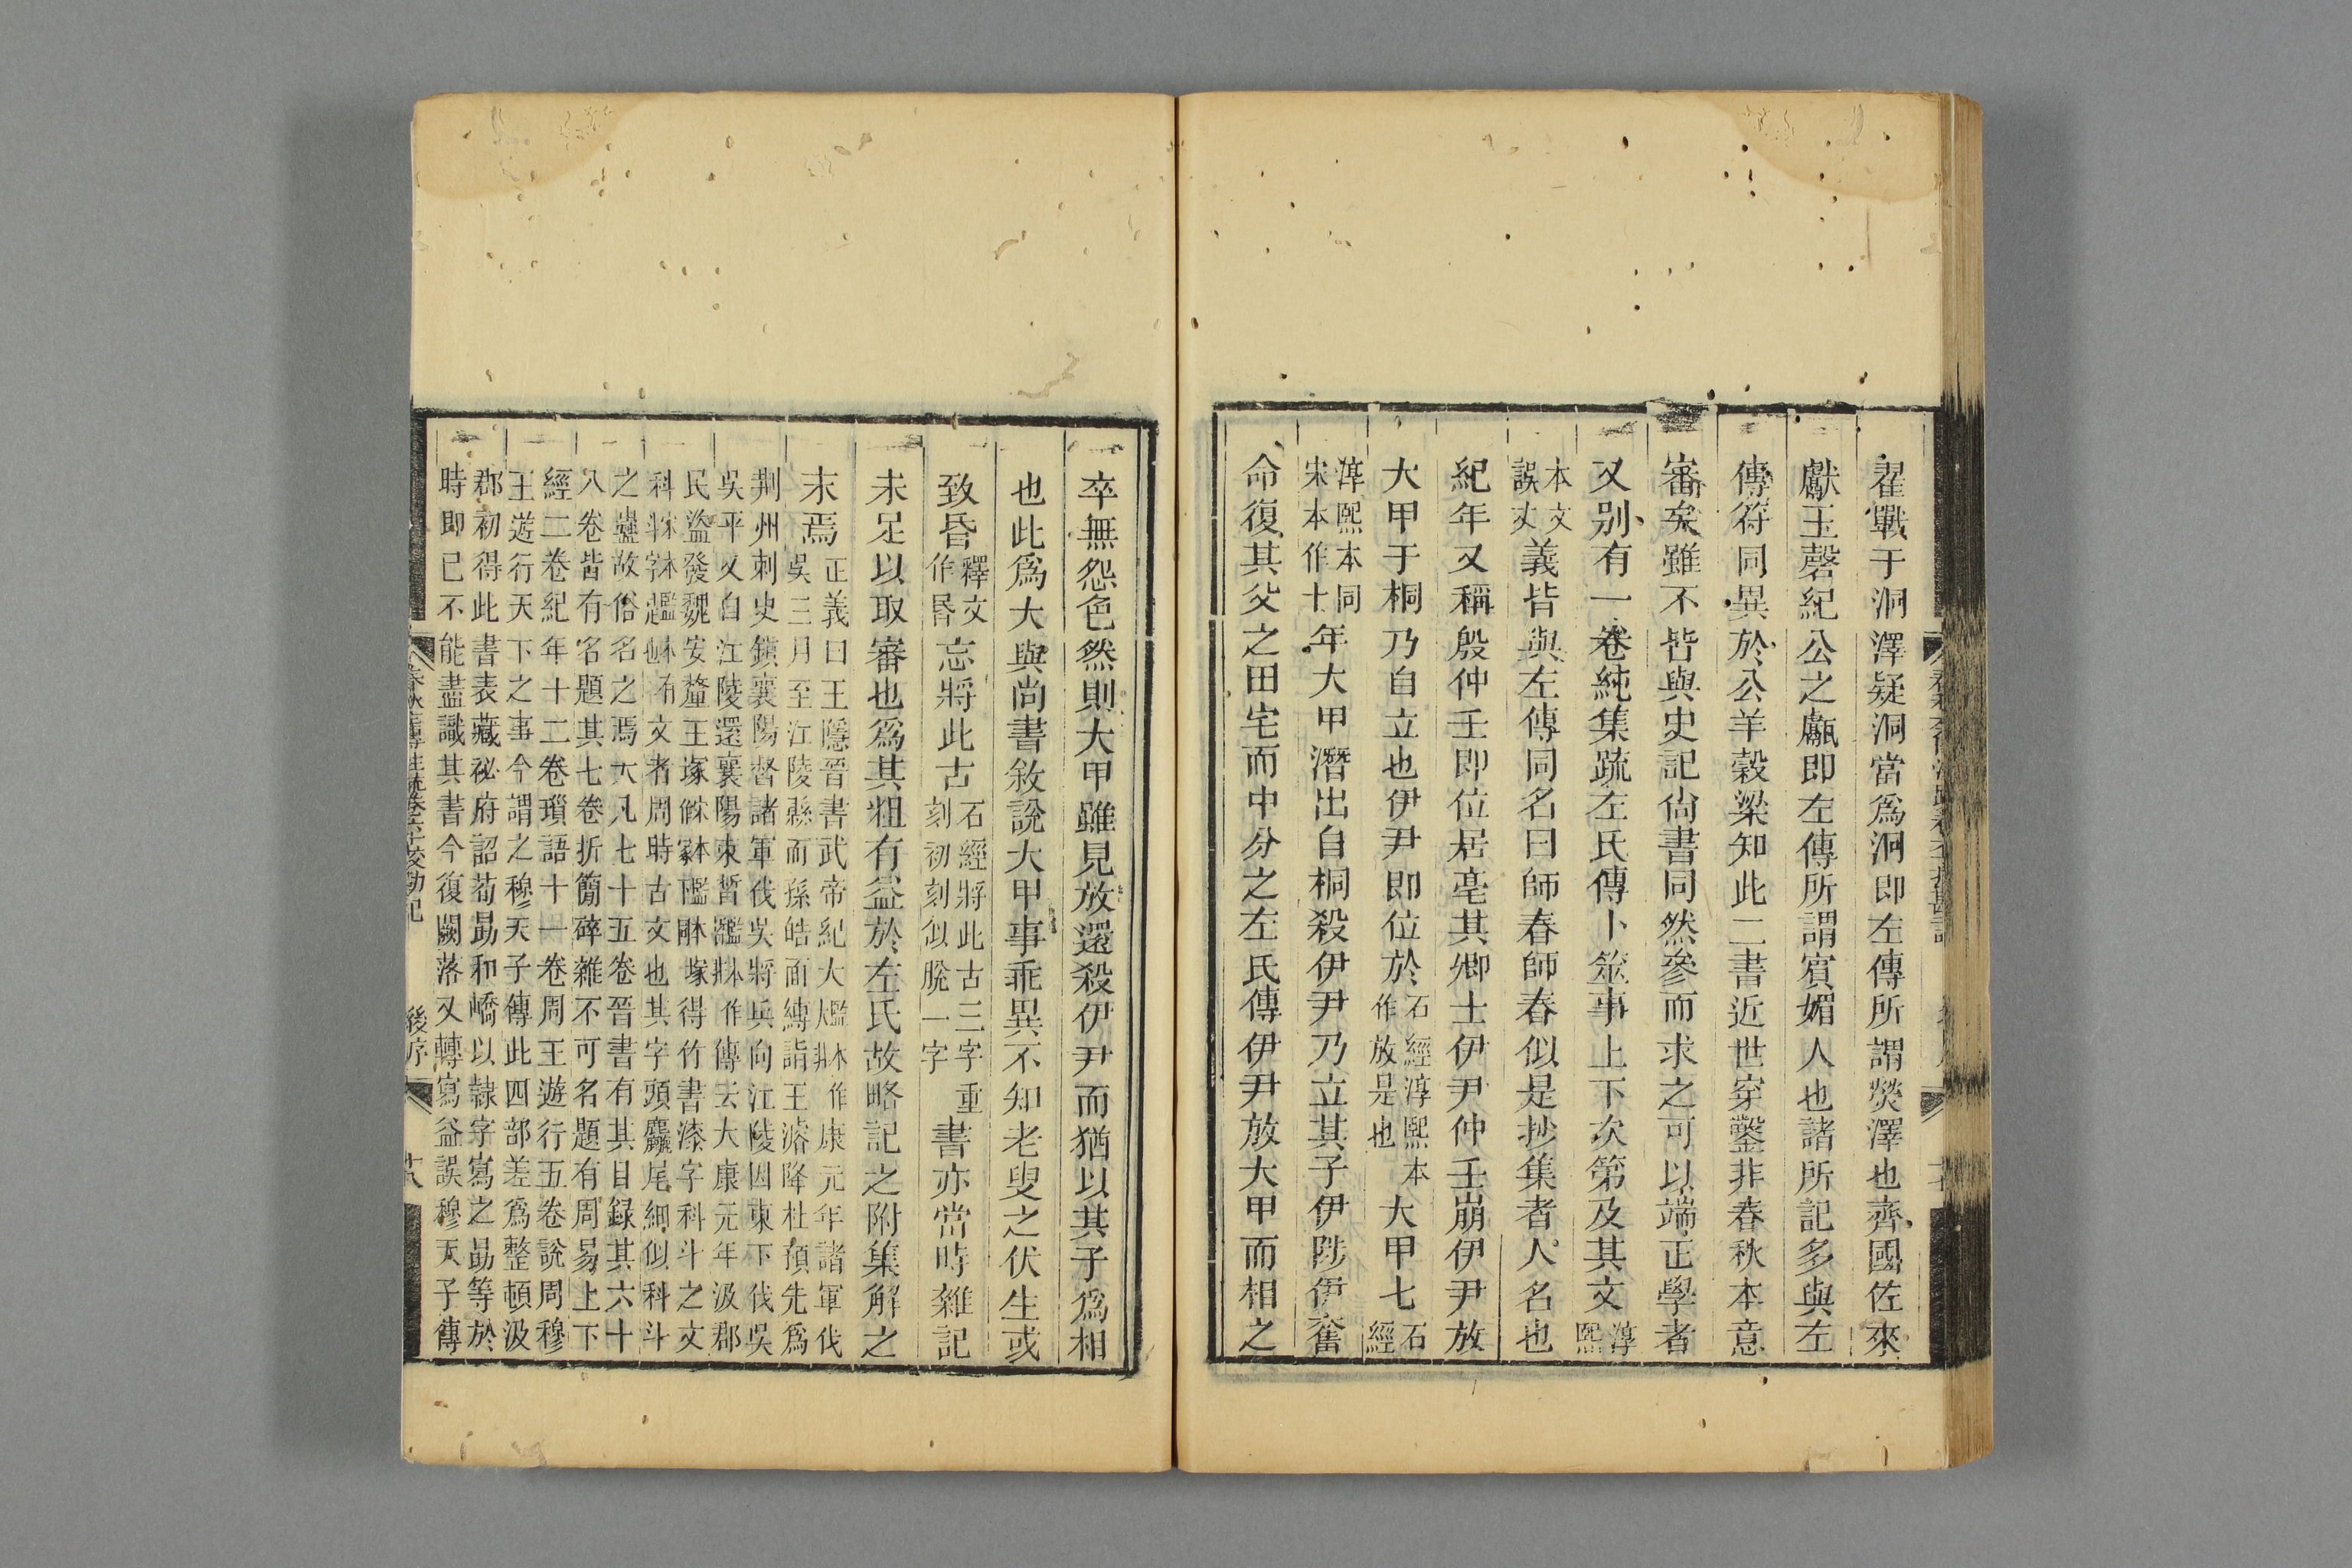 翟戰于洞澤疑洞當爲泂即左傳所謂熒澤也齊國佐來
獻玉磬紀公之甗即左傳所謂賓媚人也諸所記多與左
傳符同異於公羊穀梁知此二書近世穿鑿非春秋本意
審矣雖不皆與史記尙書同然參而求之可以端正學者
又别有一卷純集疏左氏傳卜筮事上下次第及其文淳熙
本文誤𠀋義皆與左傳同名曰師春師春似是抄集者人名也
紀年又稱殷仲壬即位居亳其卿士伊尹仲壬崩伊尹放
大甲于桐乃自立也伊尹即位於石經淳熙本作放是也大甲七石經
淳熙本同宋本作十年大甲潛出自桐殺伊尹乃立其子伊陟伊奮
命復其父之田宅而中分之左氏傳伊尹放大甲而相之
卒無怨色然則大甲雖見放還殺伊尹而猶以其子爲相
也此爲大與尚書敘說大甲事乖異不知老叟之伏生或
致昏釋文作㫻忘將此古石經將此古三字重刻初刻似脫一字書亦當時雜記
未足以取審也爲其粗有益於左氏故略記之附集解之
末焉正義曰王隱晉書武帝紀大作康元年諸軍伐
吳三月至江陵縣而孫皓面縛詣王濬降杜預先爲
荆州刺史鎮襄陽督諸軍伐吳將兵向江陵因東下伐吳
吳平又自江陵還襄陽束晳作傳云大康元年汲郡
民盜發魏安釐王塚得竹書漆字科斗之文
科斗文者周時古文也其字頭麤尾細似科斗
之蟲故俗名之焉大凡七十五卷晉書有其目録其六十
八卷皆有名題其七卷折簡碎雜不可名題有周易上下
經二卷紀年十二卷瑣語十一卷周王遊行五卷說周穆
王遊行天下之事今謂之穆天子傳此四部差爲整頓汲
郡初得此書表藏祕府詔荀勗和嶠以隸字寫之勗等於
時即已不能盡識其書今復闕落又轉寫益誤穆天子傳
後序